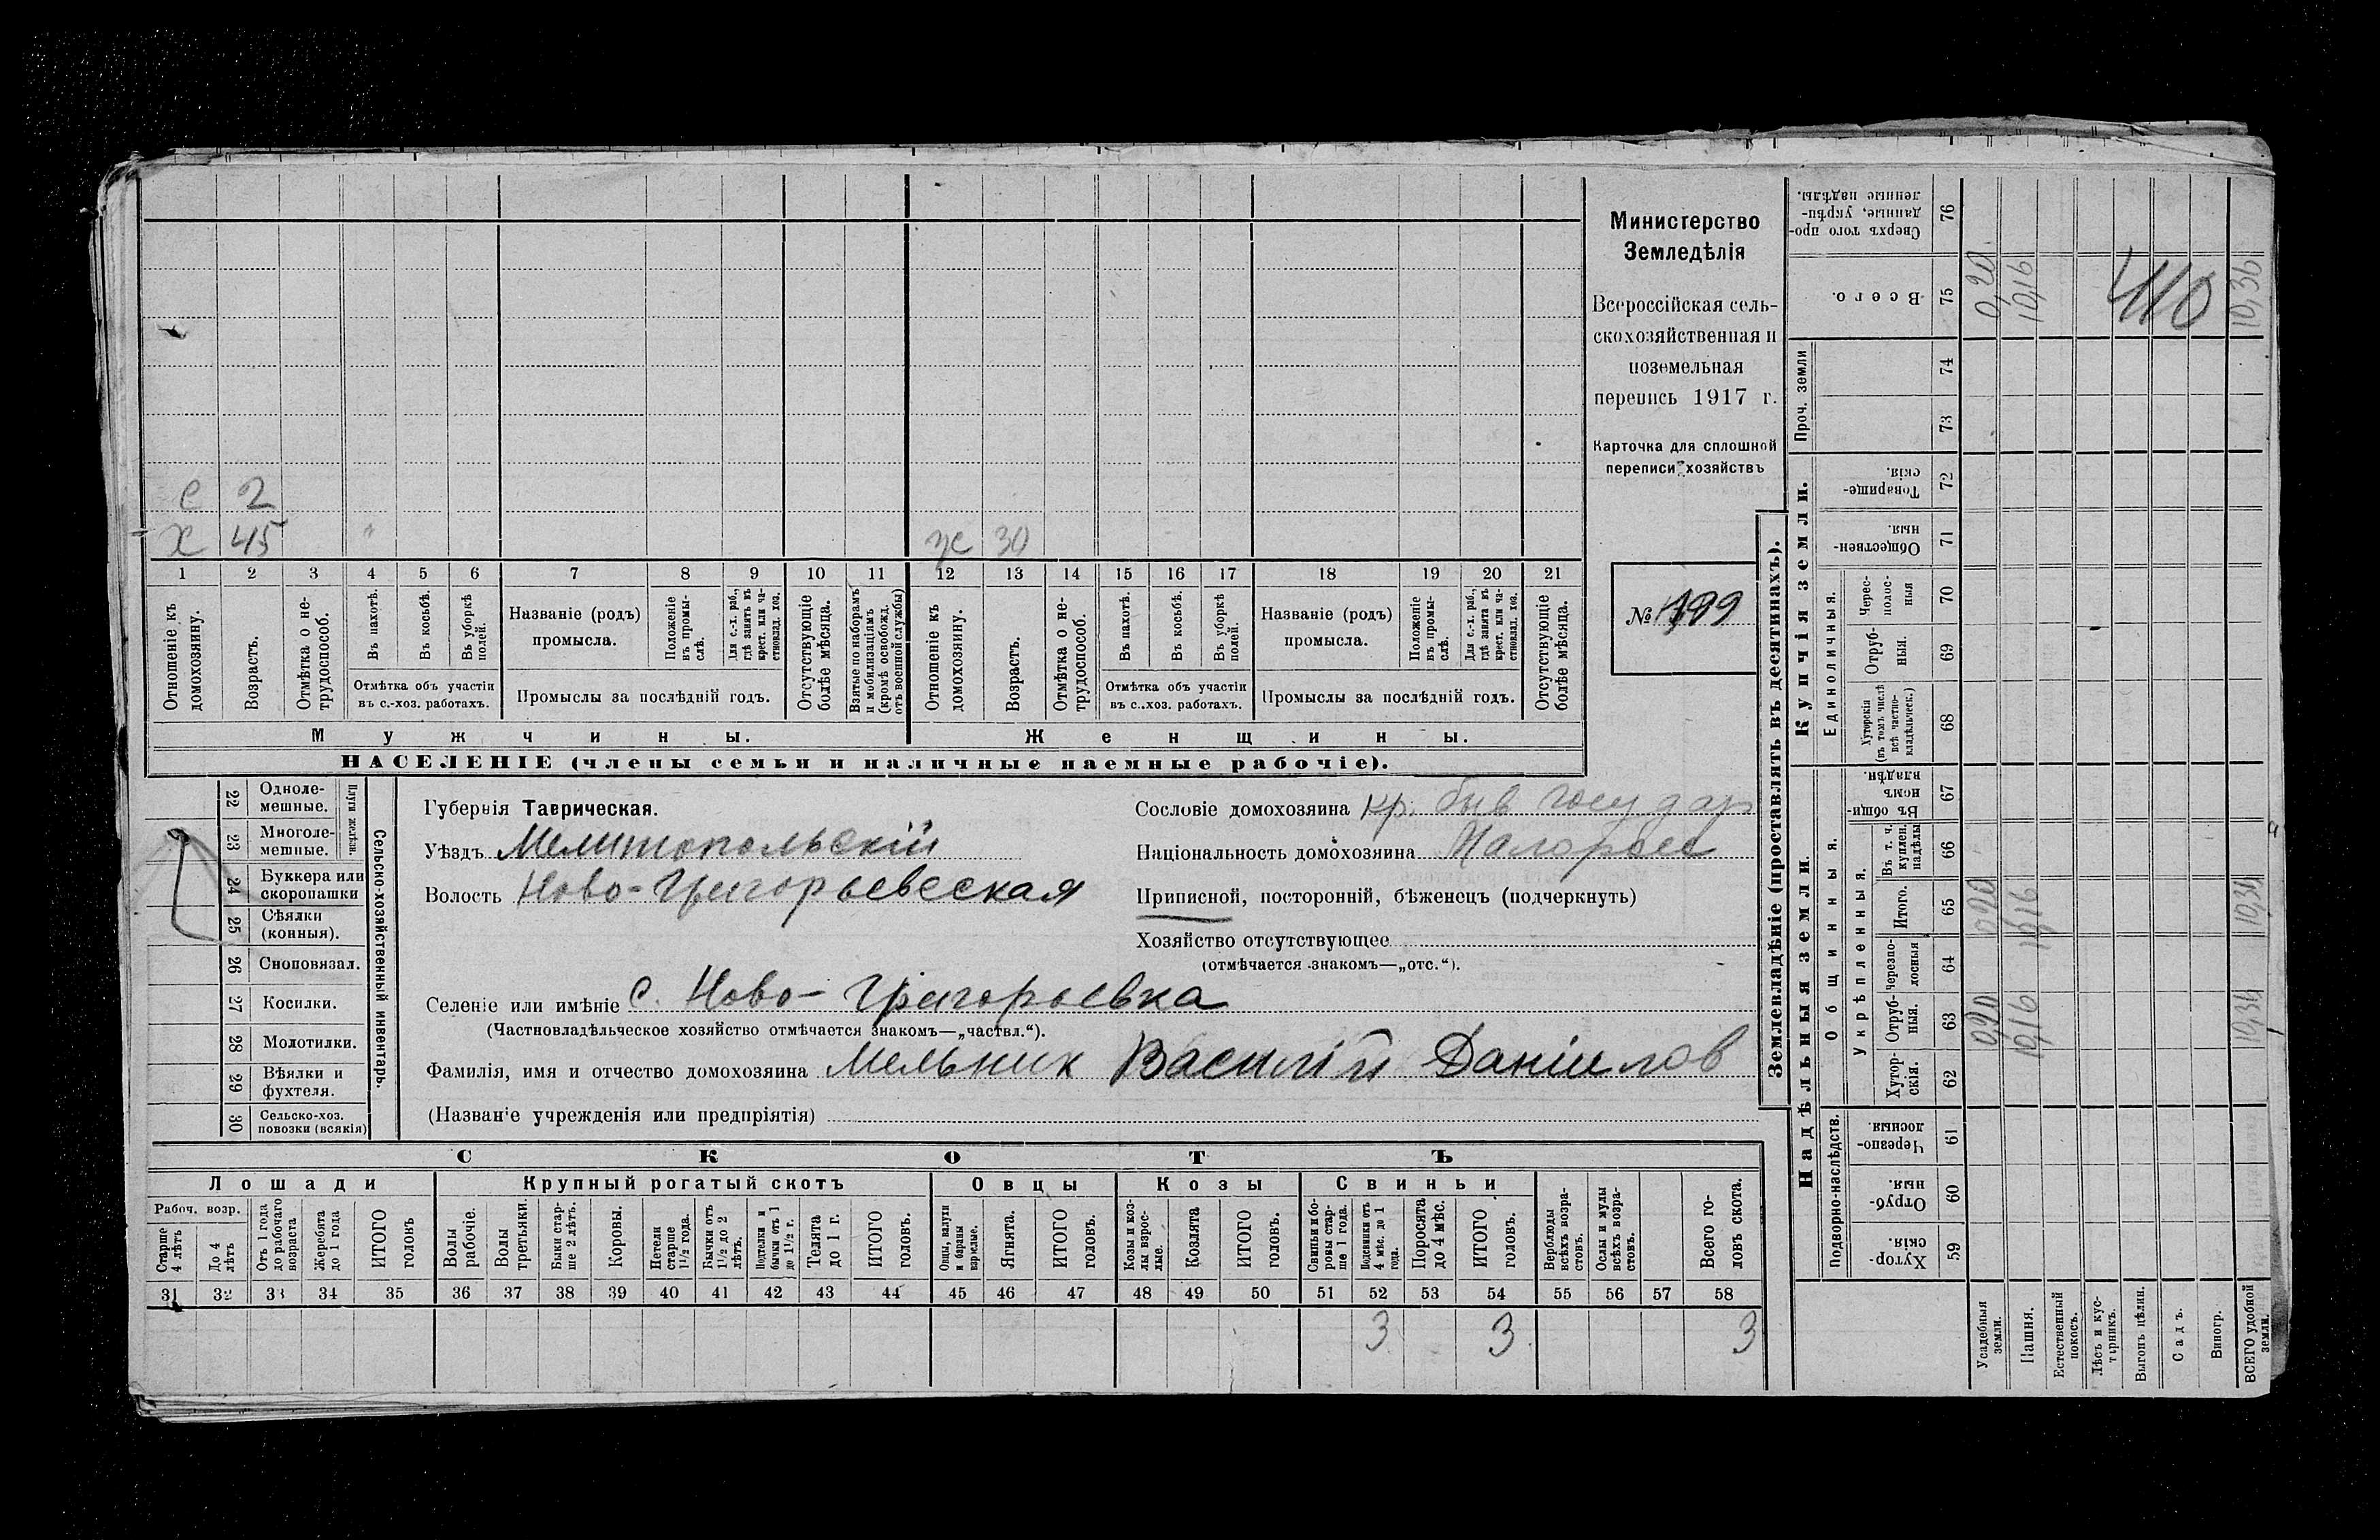 Министерство
Земледѣлія
Всероссійская сель-
скохозяйственная и
поземельная
перепись 1917 г.
Карточка для сплошной
переписи хозяйствъ
с 2
х 45
ж 30
1 2 3 4 5 6 7 8 9 10 11 12 13 14 15 16 17 18 19 20 21
Отношеніе къ домохозяину.
Возрастъ.
Отмѣтка о не-трудоспособ.
Въ пахотѣ.
Въ косьбѣ.
Въ уборкѣ полей.
Отмѣтка объ участіи
въ с.-хоз. работахъ.
Названіе (родъ)
промысла.
Положеніе въ промы-слѣ.
Для с.-х. раб., гдѣ занятъ въ крест. или ча-стновлад. хоз.
Промыслы за послѣдній годъ.
Отсутствующіе болѣе мѣсяца.
Взятые по наборамъ и мобилизаціямъ (кромѣ освобожд. отъ военной службы)
Отношеніе къ домохозяину.
Возрастъ.
Отмѣтка о не-трудоспособ.
Въ пахотѣ.
Въ косьбѣ.
Въ уборкѣ полей.
Отмѣтка объ участіи
въ с.-хоз. работахъ.
Названіе (родъ)
промысла.
Положеніе въ промы-слѣ.
Для с.-х. раб., гдѣ занята въ крест. или ча-стновлад. хоз.
Промыслы за послѣдній годъ.
Отсутствующіе болѣе мѣсяца.
Мужчины.
Женщины.
НАСЕЛЕНІЕ (члены семьи и наличные наемные рабочіе).
№ 199
22 Одноле-мешные.
23 Многоле-мешные.
Плуги желѣзн.
24 Буккера или скоропашки
25 Сѣялки (конныя).
26 Сноповязал.
27 Косилки.
28 Молотилки.
29 Вѣялки и фухтеля.
30 Сельско-хоз. повозки (всякія)
Сельско-хозяйственный инвентарь.
Губернія Таврическая.
Уѣздъ Мелитопольскій
Волость Ново-Григорьевская
Сословіе домохозяина кр. быв государ
Національность домохозяина Малоросс
Приписной, посторонній, бѣженецъ (подчеркнуть)
Хозяйство отсутствующее
(отмѣчается знакомъ—„отс.“).
Селеніе или имѣніе с. Ново-Григорьевка
(Частновладѣльческое хозяйство отмѣчается знакомъ—„частвл.“).
Фамилія, имя и отчество домохозяина Мельник Василій Даніилов
(Названіе учрежденія или предпріятія)
СКОТЪ
Лошади
Крупный рогатый скотъ
Овцы
Козы
Свиньи
Рабоч. возр.
Старше 4 лѣтъ
До 4 лѣтъ
Отъ 1 года до рабочаго возраста
Жеребята до 1 года
ИТОГО головъ
Волы рабочіе.
Волы третьяки.
Быки стар-ше 2 лѣтъ.
Коровы.
Нетели старше 1½ года.
Бычки отъ 1½ до 2 лѣтъ.
Подтелки и бычки отъ 1 до 1½ г.
Телята до 1 г.
ИТОГО головъ.
Овцы, валухи и бараны взрослые.
Ягнята.
ИТОГО головъ.
Козы и коз-лы взрос-лые.
Козлята
ИТОГО головъ.
Свиньи и бо-ровы стар-ше 1 года.
Подсвинки отъ 4 мѣс. до 1 года.
Поросята до 4 мѣс.
ИТОГО головъ.
Верблюды всѣхъ возра-стовъ.
Ослы и мулы всѣхъ возра-стовъ.
Всего го-ловъ скота.
31 32 33 34 35 36 37 38 39 40 41 42 43 44 45 46 47 48 49 50 51 52 53 54 55 56 57 58
3 3 3
Землевладѣніе (проставлять въ десятинахъ).
Надѣльныя земли.
Купчія земли.
Проч. земли
Подворно-наслѣдств.
Общинныя.
Укрѣпленныя.
Единоличныя.
Хутор-скія. 59
Отруб-ныя. 60
Черезпо-лосныя. 61
Хутор-скія. 62
Отруб-ныя. 63
Черезпо-лосныя 64
Итого. 65
Въ т. ч. куплен. надѣлы 66
Въ общи-номъ владѣн. 67
Хуторскія (въ томъ числѣ всѣ частно-владѣльческ.) 68
Отруб-ныя. 69
Черес-полос-ныя 70
Обществен-ныя. 71
Товарище-скія. 72
73
74
Всего. 75
Сверхъ того про-данные, укрѣп-ленные надѣлы. 76
Усадебныя земли. 0,20 0,20 0,20
Пашня. 10,16 10,16 10,16
Естественный покосъ.
Лѣсъ и кус-тарникъ.
Выгонъ цѣлин.
Садъ.
Виногр.
ВСЕГО удобной земли. 10,36 10,36 10,36
410